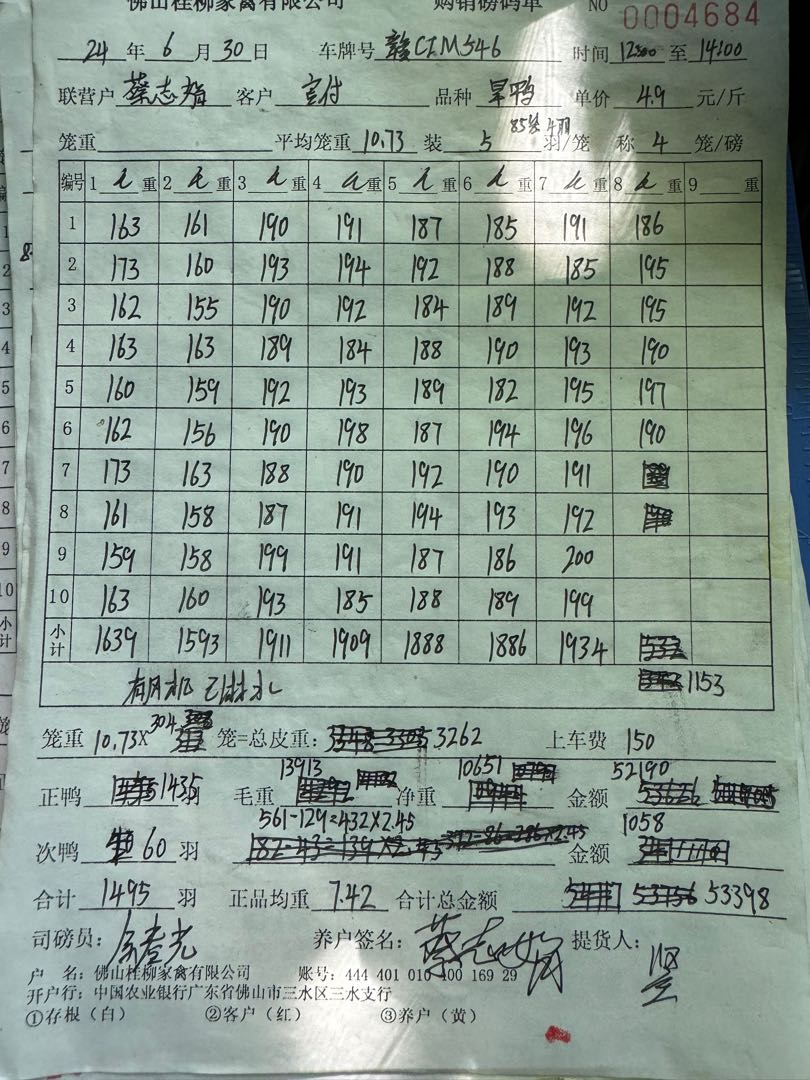 佛山桂柳家禽有限公司 购销磅码单 NO 0004684
24 年 6 月 30 日 车牌号 赣CIM546 时间 12:00 至 14:00
联营户 蔡志娟 客户 品种 旱鸭 单价 4.9 元/斤
笼重 平均笼重 10.73 装 5 羽/笼 称 4 笼/磅
编号 1 重 2 重 3 重 4 重 5 重 6 重 7 重 8 重 9 重
1 163 161 190 191 187 185 191 186
2 173 160 193 194 192 188 185 195
3 162 155 190 192 184 189 192 195
4 163 163 189 184 188 190 193 190
5 160 159 192 193 189 182 195 197
6 162 156 190 198 187 194 196 190
7 173 163 188 190 192 190 191
8 161 158 187 191 194 193 192
9 159 158 199 191 187 186 200
10 163 160 193 185 188 189 199
小计 1639 1593 1911 1909 1888 1886 1934
1153
笼重 10.73× 304 笼=总皮重: 3262 上车费 150
正鸭 1435 羽 毛重 13913 净重 10651 金额 52190
次鸭 60 羽 561-129=432×2.45 金额 1058
合计 1495 羽 正品均重 7.42 合计总金额 53398
司磅员: 养户签名: 蔡志娟 提货人:
户 名: 佛山桂柳家禽有限公司 账号: 444 401 010 400 169 29
开户行: 中国农业银行广东省佛山市三水区三水支行
①存根（白） ②客户（红） ③养户（黄）